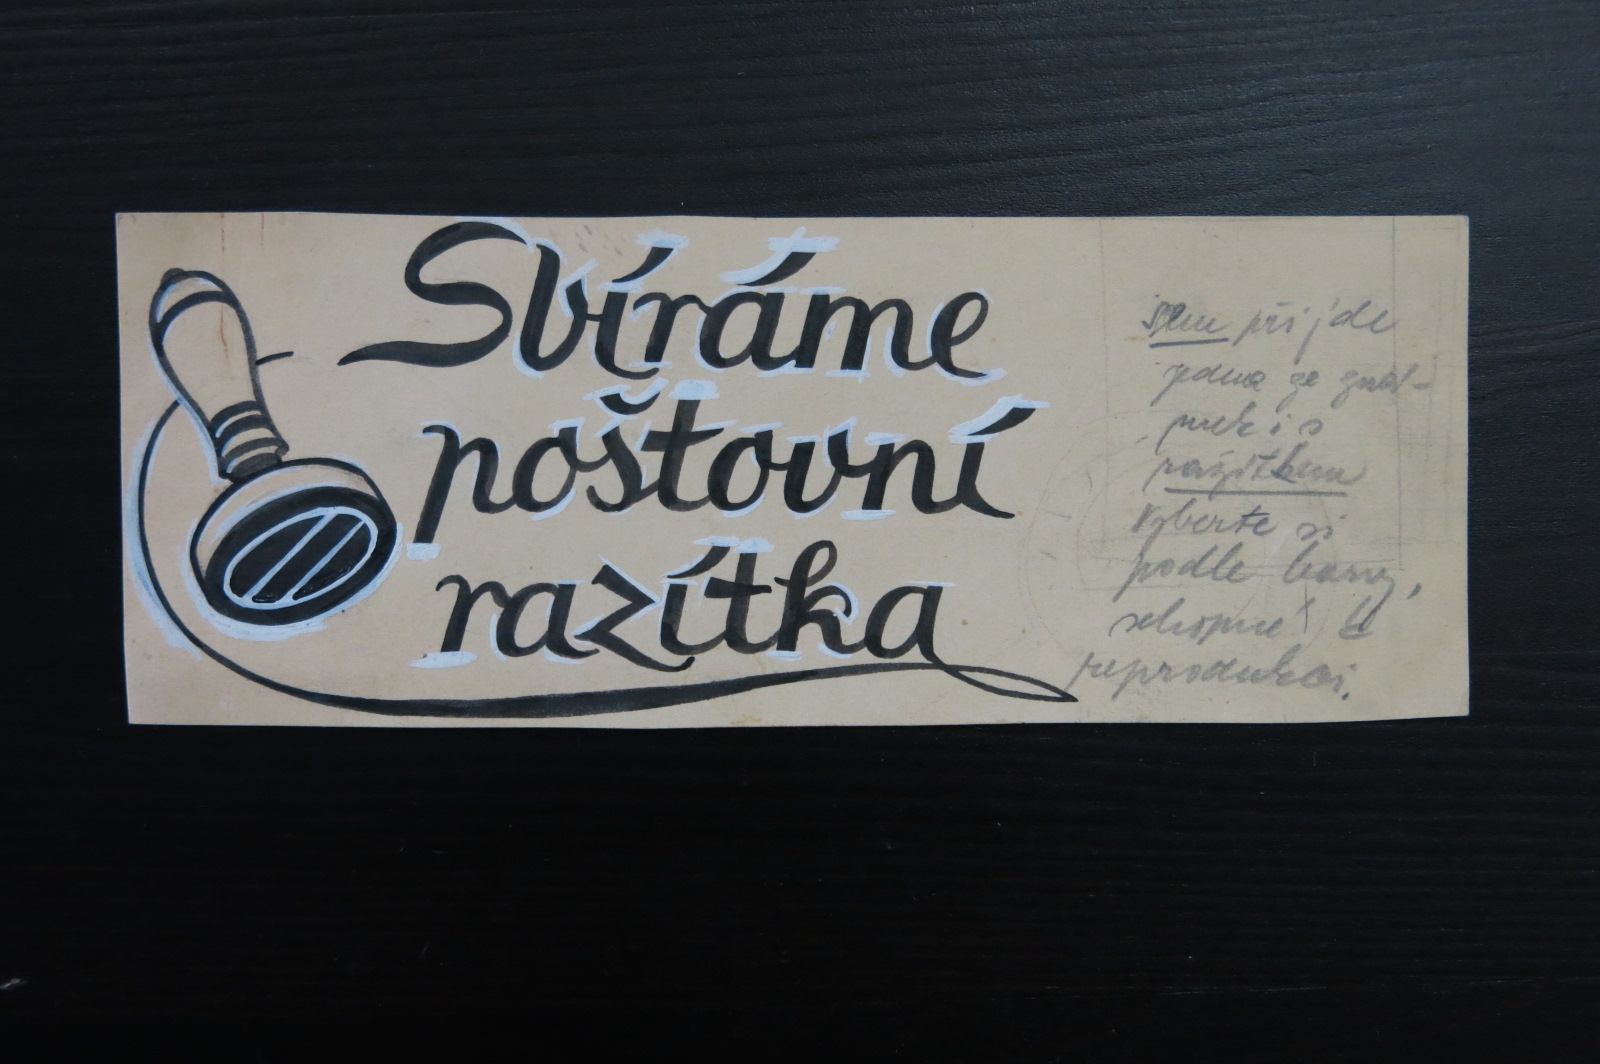 Sbíráme
poštovní
razítka
sem přijde
jedna ze znám-
mek i s
razítkem
vyberte si
podle barvy,
schopné k
reprodukci.